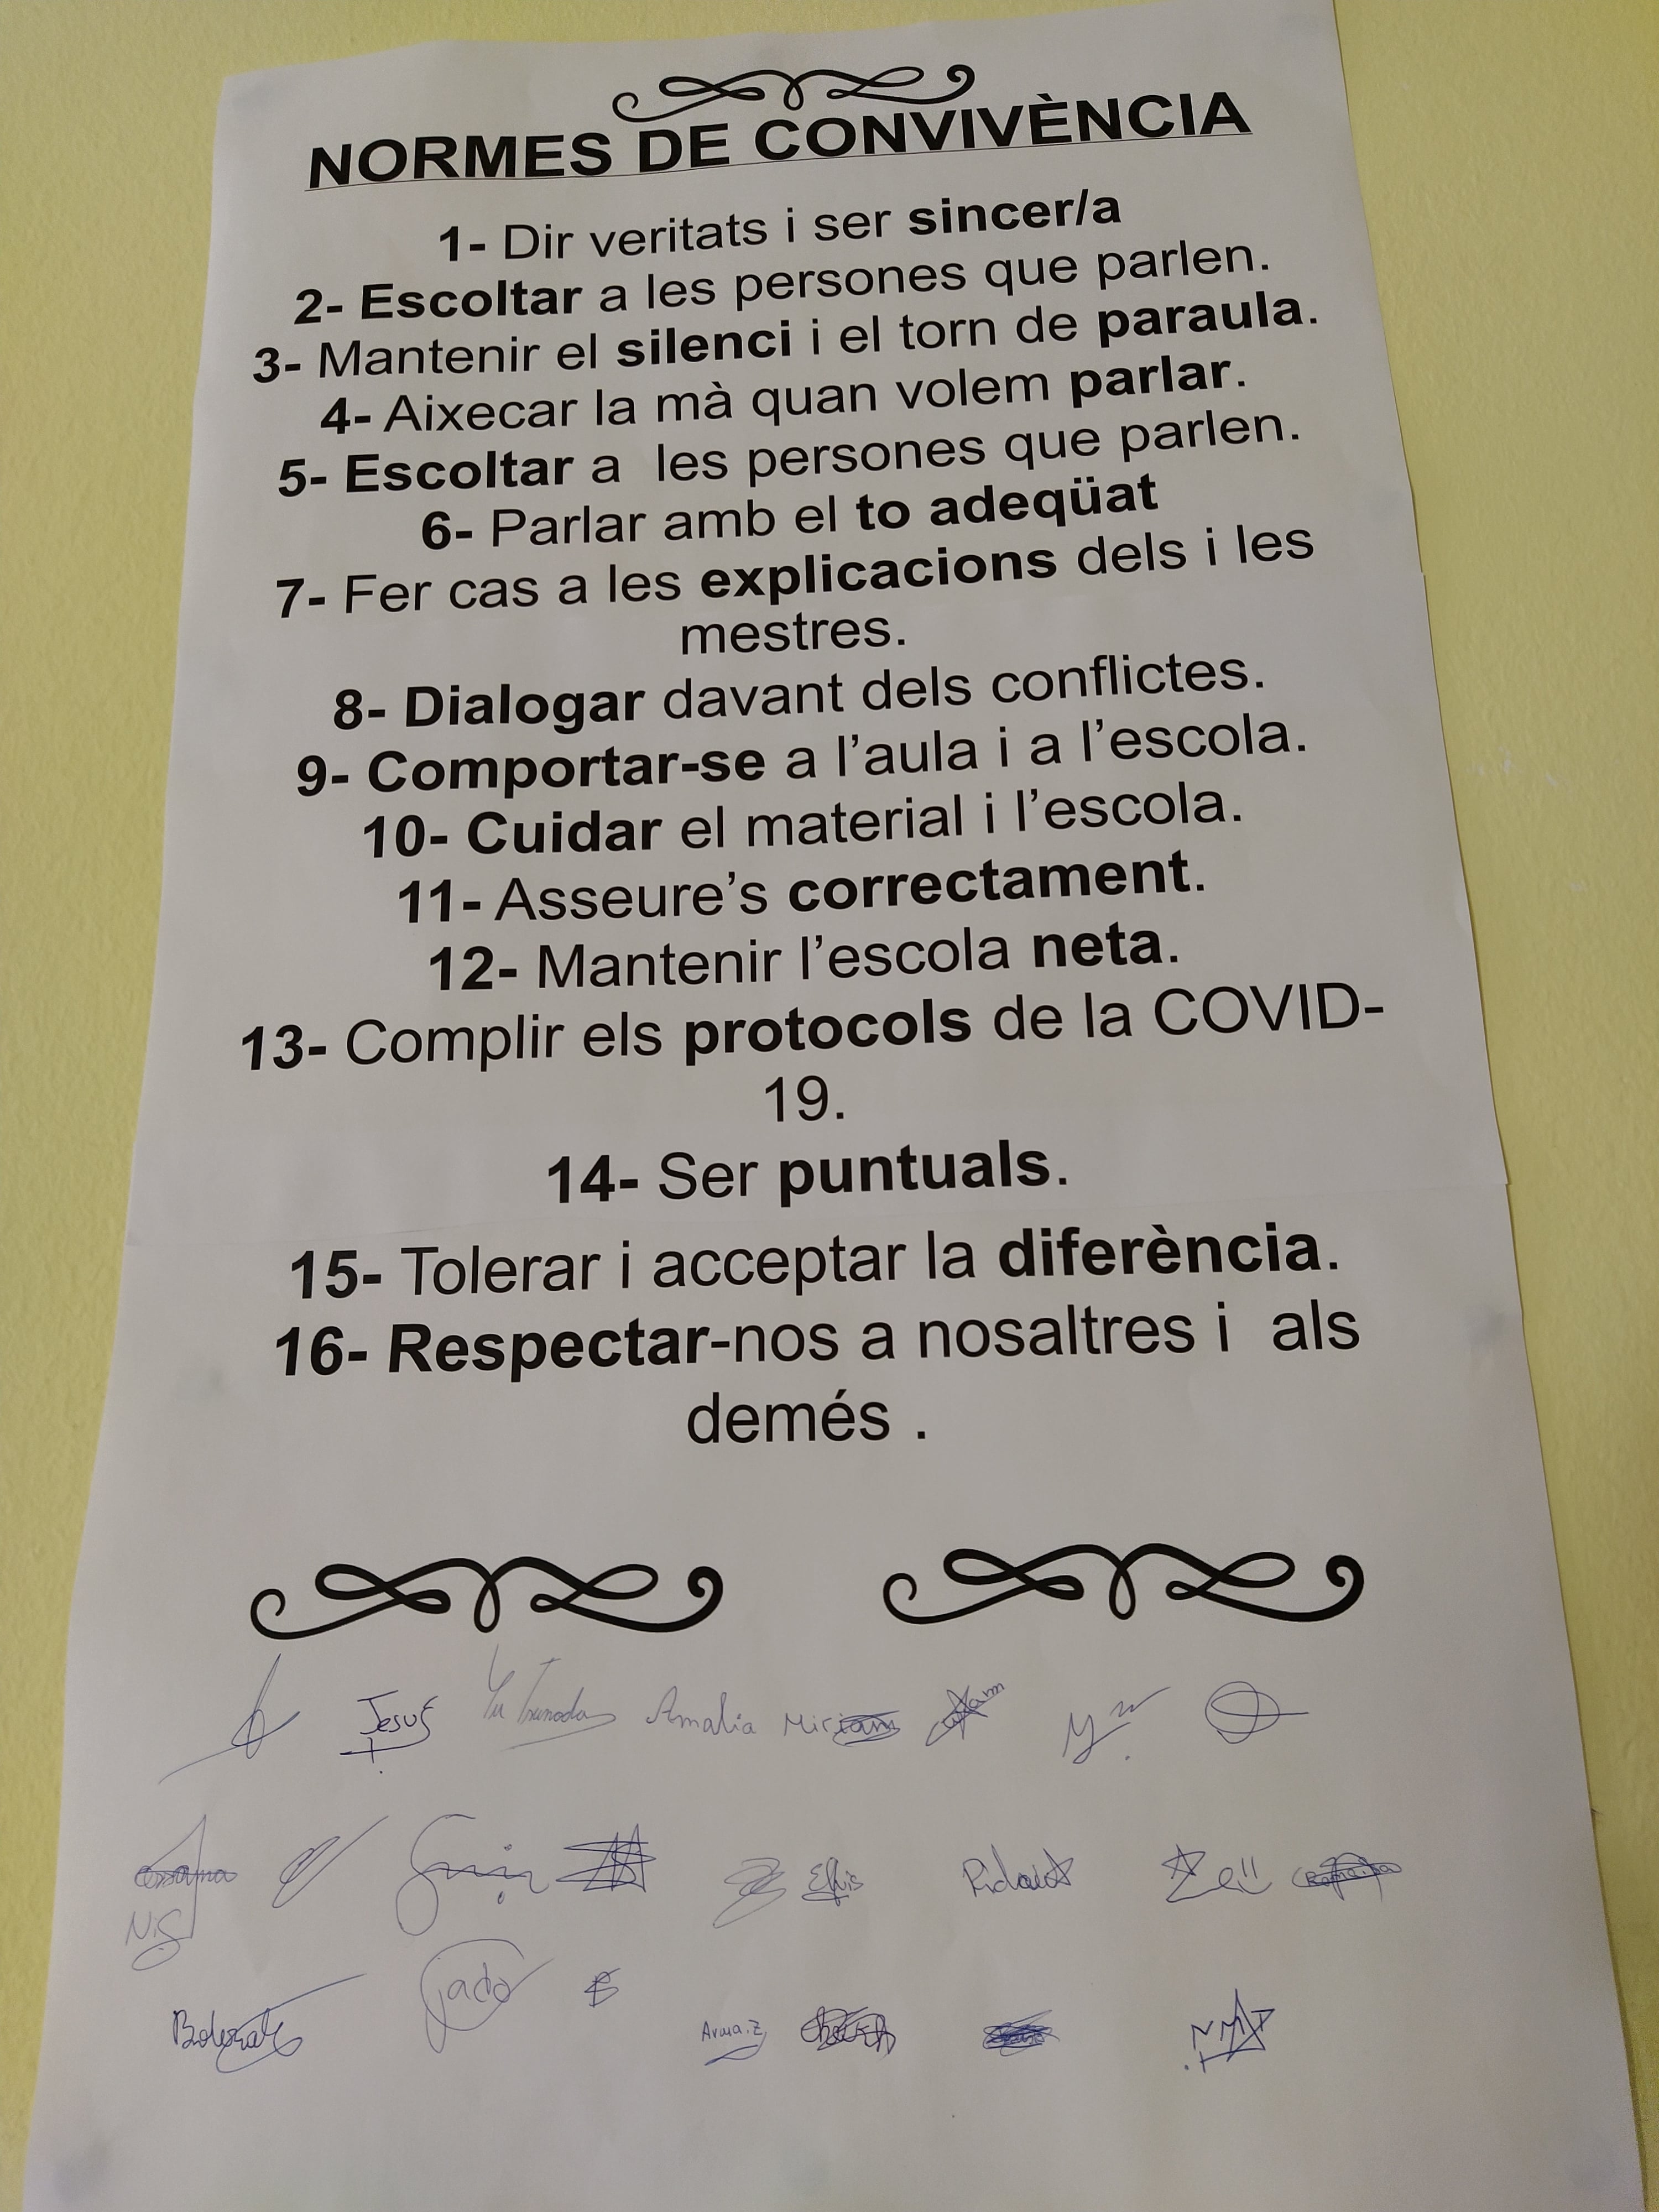 NORMES DE CONVIVÈNCIA
1- Dir veritats i ser sincer/a
2- Escoltar a les persones que parlen.
3- Mantenir el silenci i el torn de paraula.
4- Aixecar la mà quan volem parlar.
5- Escoltar a les persones que parlen.
6- Parlar amb el to adeqüat
7- Fer cas a les explicacions dels i les
mestres.
8- Dialogar davant dels conflictes.
9- Comportar-se a l'aula i a l'escola.
10- Cuidar el material i l'escola.
11- Asseure's correctament.
12- Mantenir l'escola neta.
13- Complir els protocols de la COVID-
19.
14- Ser puntuals.
15- Tolerar i acceptar la diferència.
16- Respectar-nos a nosaltres i als
demés .
Jesus Amalia Miriam